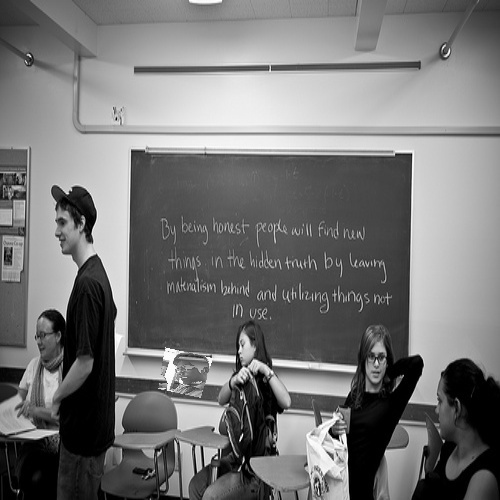 By being honest people will find new
things in the hidden truth by leaving
materialism behind and utilizing things not
in use.